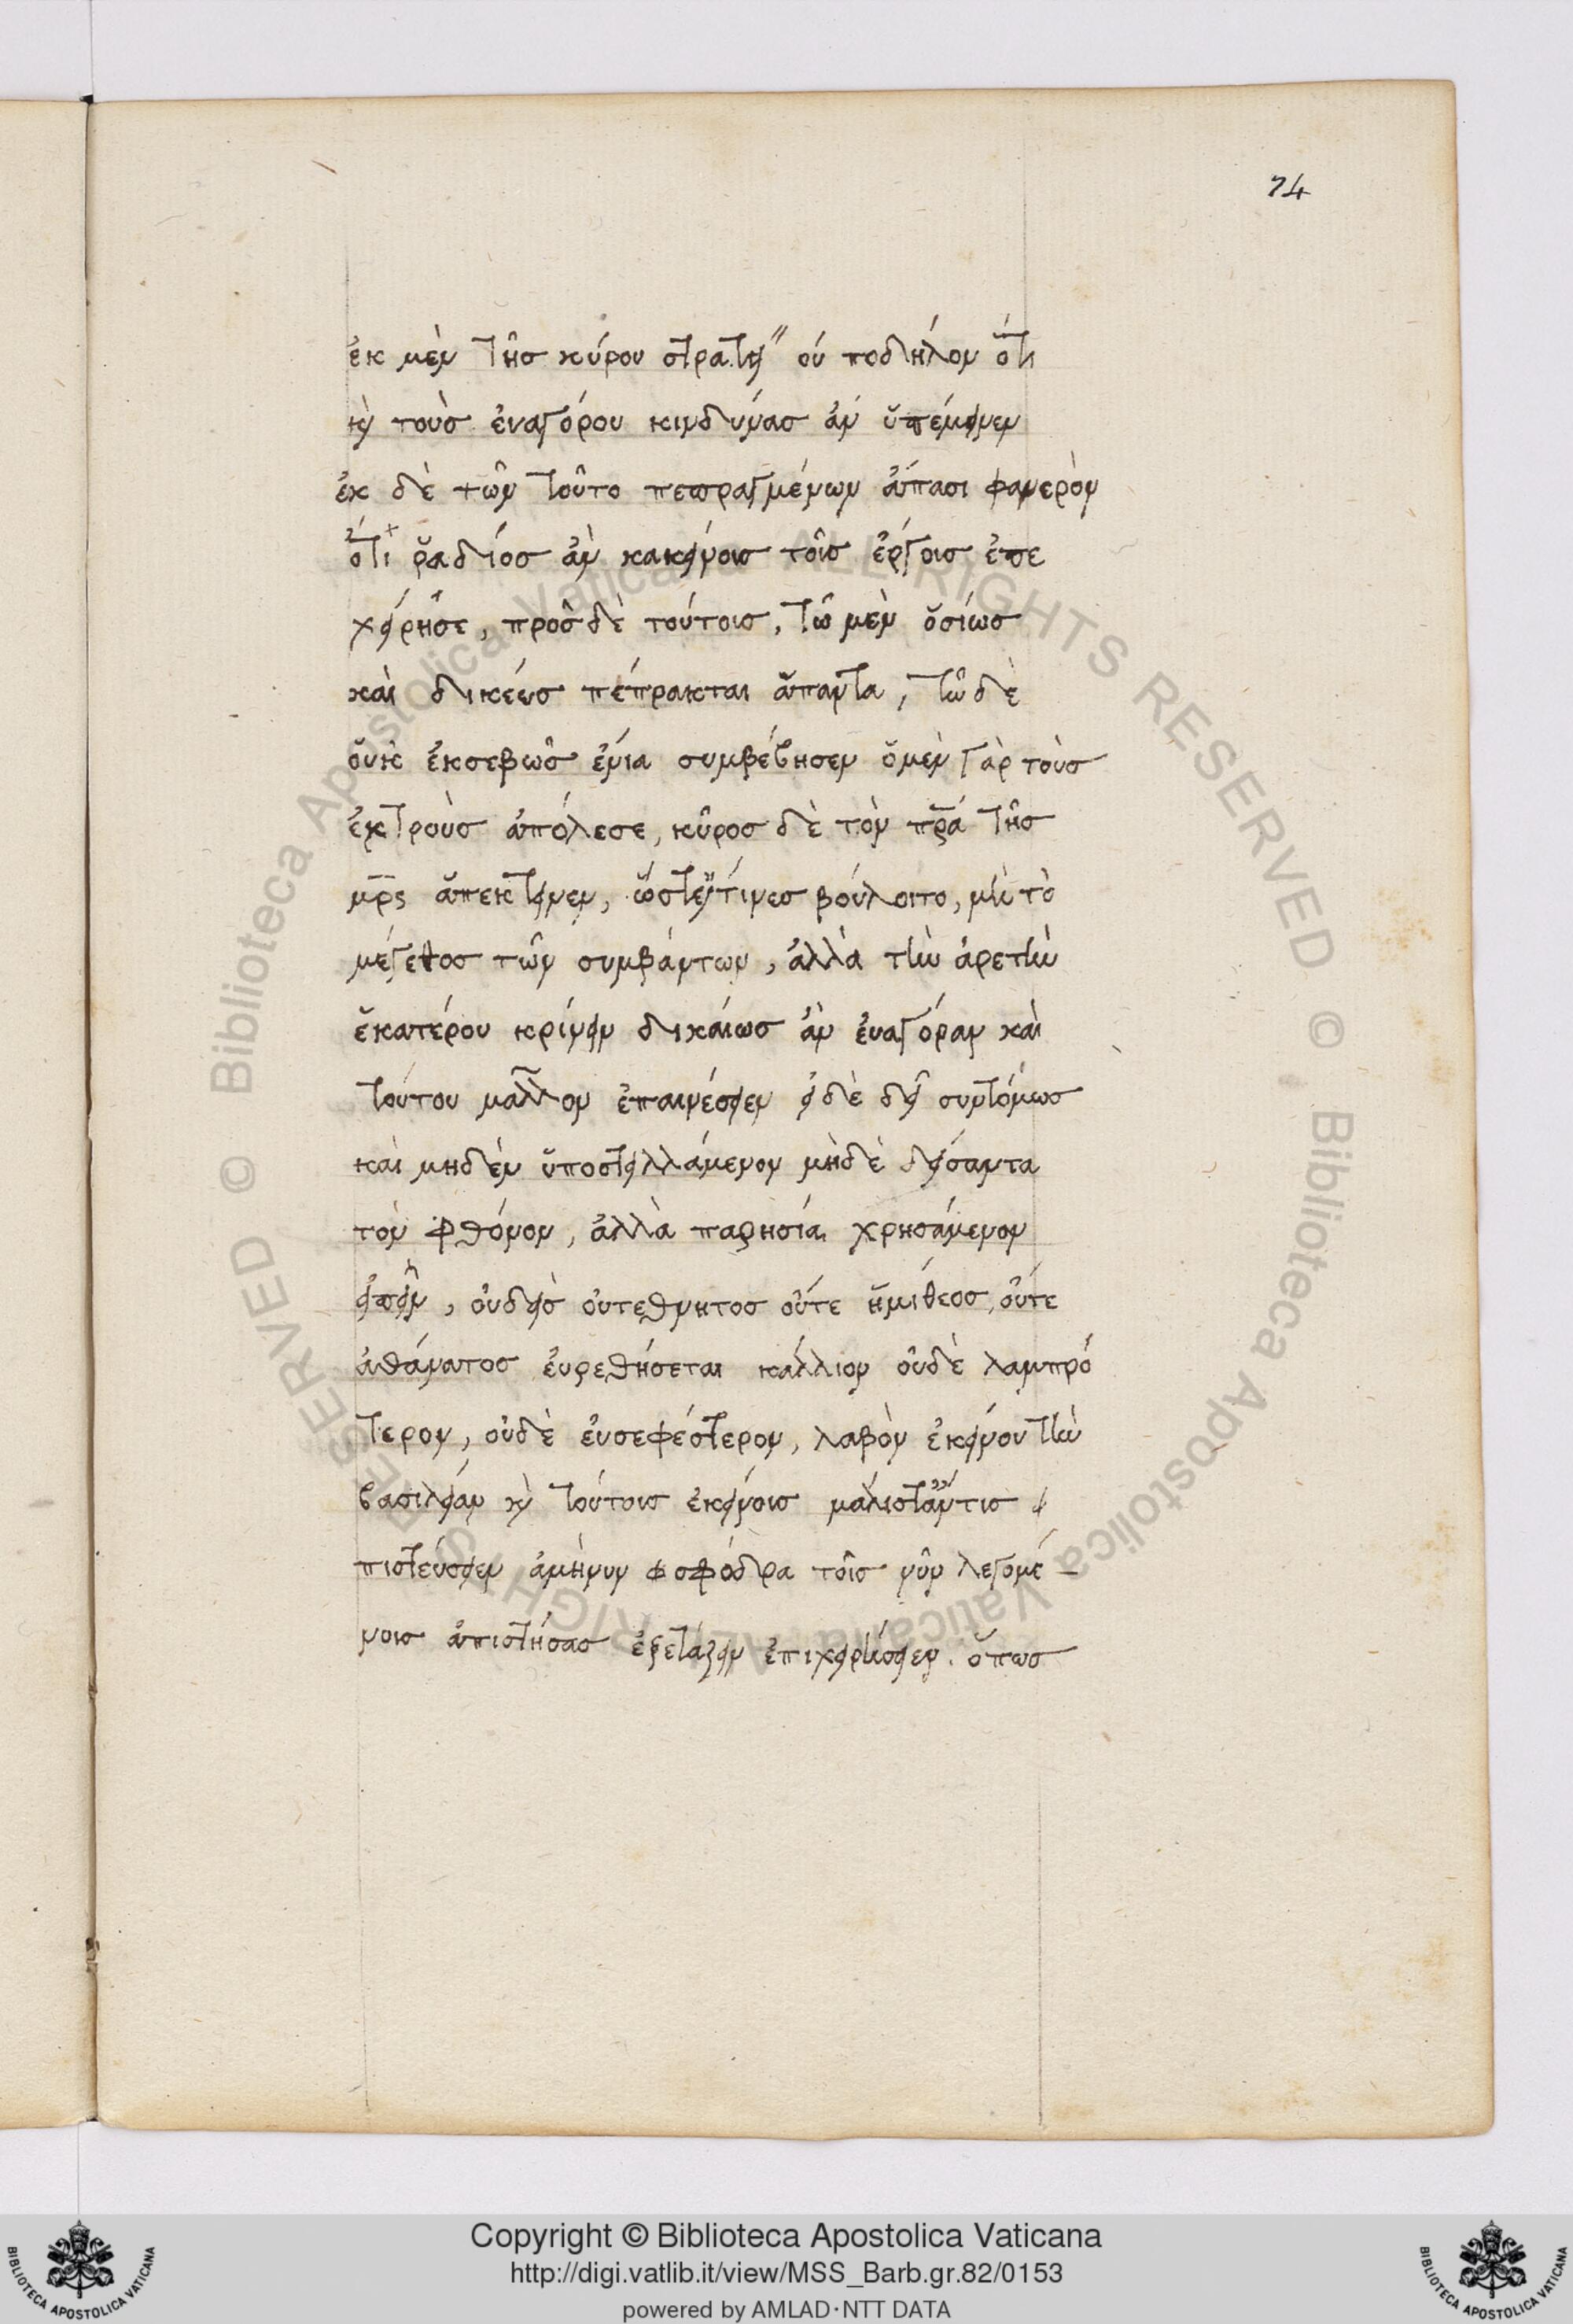 74
ἐκ μὲν τῆσ κύρου στρατει" ού ποδήλον ὅτι
κὴ τοὺσ ἐναγόρου κινδύνασ ἀν ὕπέμεινεν
ἐκ δὲ τῶν τοῦτο πεπραγμένων ἅπασι φανερὸν
ὅτι ῥαδίοσ ἀν κακείνοισ τοῖσ ἔργοισ ἐπε
χείρησε, προσ δὲ τούτοισ, τῶ μὲν ὅσίωσ
καὶ δικέωσ πέπρακται ἅπαντα, τῶ δὲ
οὔκ ἐκσεβῶσ ἐνια συμβέβησεν ὅμὲν γὰρ τοὺσ
ἐκτροὺσ ἀπόλεσε, κῦροσ δὲ τὸν πρα τῆσ
μρς ἄπεκτεινεν, ὥστεἴ τίνεσ βούλοιτο, μὴ τὸ
μέγεθοσ τῶν συμβάντων, ἀλλὰ τὴν ἀρετὴν
ἕκατέρου κρίνειν δικαίωσ ἀν ἐναγόραν καὶ
τούτου μαλλον ἐπαινέσειεν εἰδὲ δεῖ συντόμωσ
καὶ μηδὲν ὕποστειλλάμενον μὴδὲ δείσαντα
τὸν φθόνον, ἀλλὰ παρησία χρησάμενον
εἰπεῖν, οὐδεὶσ οὐτεθνητοσ οὔτε ἥμιθεοσ, οὔτε
ἀθάνατοσ ἐυρεθήσεται κάλλιον οὐδὲ λαμπρό
τερον, οὐδὲ ἐυσεφέστερον, λαβὸν ἐκείνου τὴν
βασιλείαν κὴ τούτοισ ἐκείνοισ μαλιστ᾽ἄντισ
πιστεύσειεν ἀμήνυν σφόδρα τοῖσ νῦν λεγομέ
νοισ ἀπιστήσασ ἐξετάζειν ἐπιχειρήσειεν. ὅπωσ
Copyright © Biblioteca Apostolica Vaticana
http://digi.vatlib.it/view/MSS_Barb.gr.82/0153
powered by AMLAD·NTT DATA